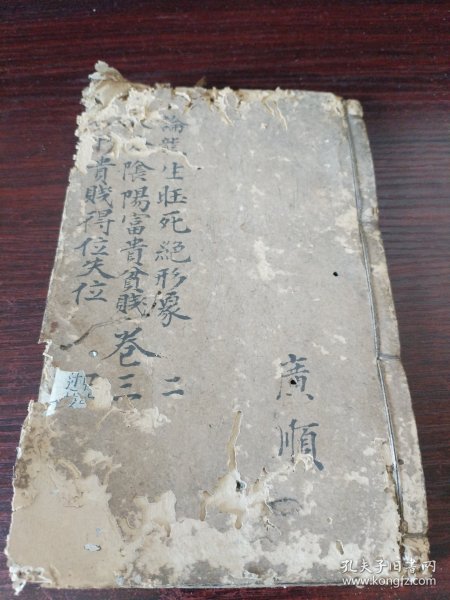 論龍生旺死絕形像 二
陰陽富貴貧賤 卷三
貴賤得位失位
廣順
孔夫子旧书网
www.kongfz.com